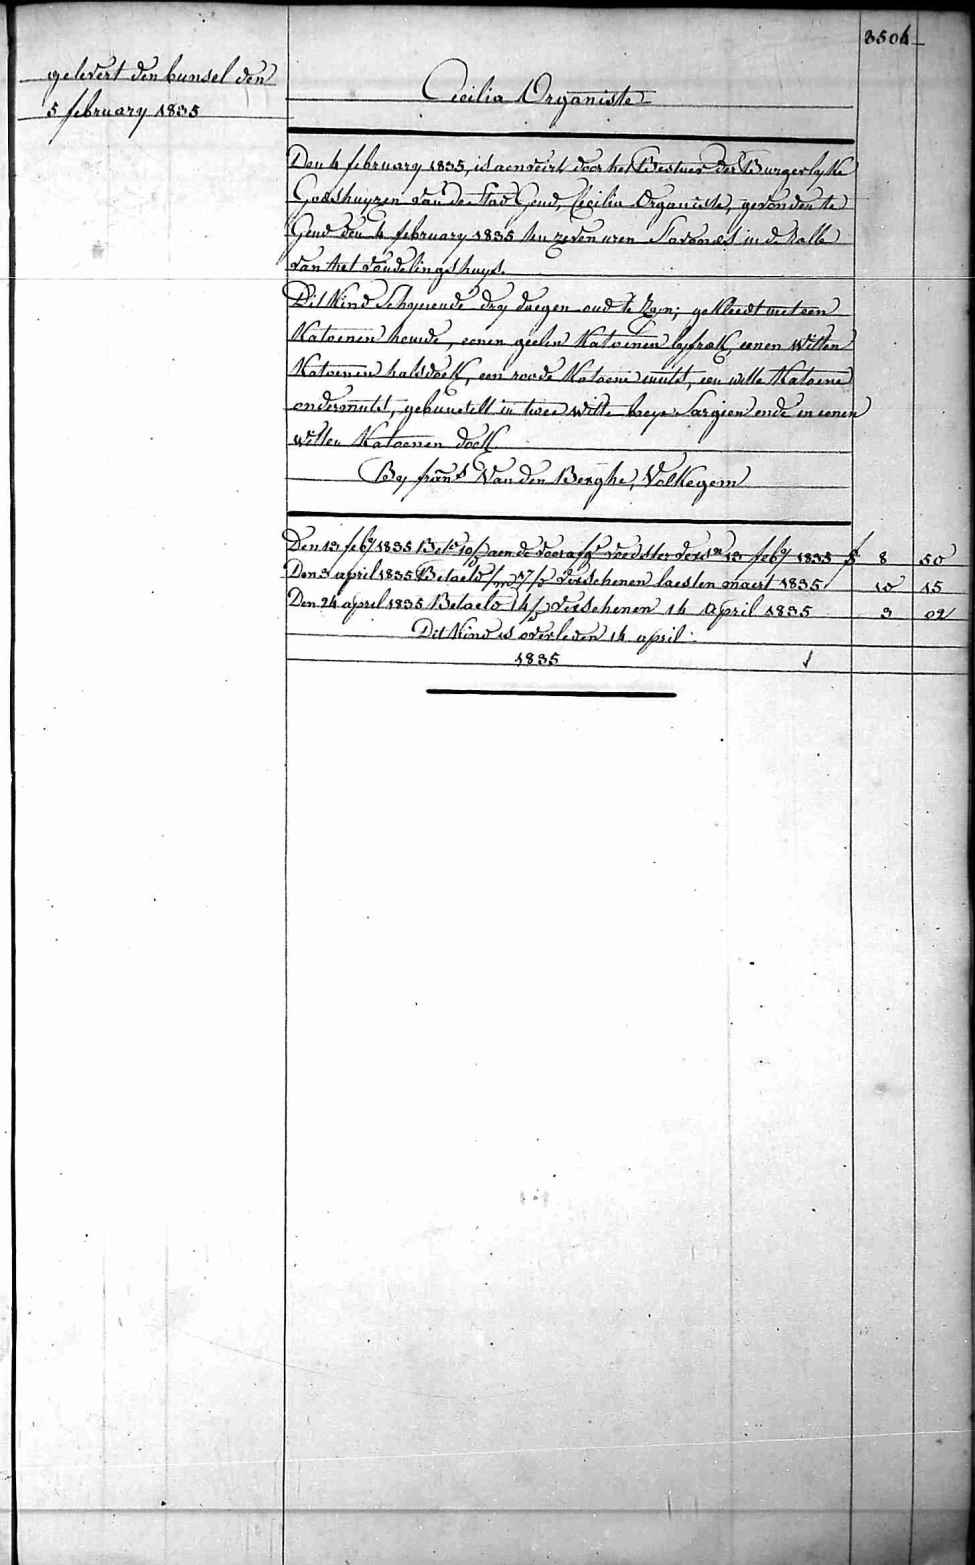 3504
gelevert den bunsel den
5 february 1835
Cecilia Organiste
Den 4 february 1835, is aenveirt door het Bestuer der Burgerlyke
Godshuyzen van de Stad Gend, Cecilia Organiste, gevonden te
Gend den 4 february 1835 ten zeven uren s'avonds in de Rolle
van het vondelingshuys.
Dit Kind Schynende dry daegen oud te Zyn; gekleedt met een
Katoenen hemde, eenen geelen Katoenen lyfrok, eenen Witten
Katoenen halsdoek, een roode Katoene muts, een witte Katoene
ondermuts, gebunselt in twee witte baeye Sargien ende in eenen
witten Katoenen doek.
By frans Van den Berghe, Volkegem
Den 13 feby 1835 Bet. aen de voedster 13 feby 1835 f 8 50
Den 3 april 1835 Betaeld verschenen laesten maert 1835 10 15
Den 24 april 1835 Betaeld verschenen 14 april 1835 3 02
Dit Kind is overleden 14 april
1835